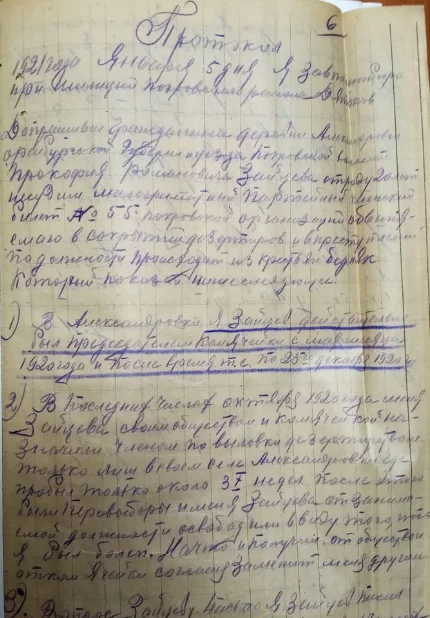 6
Протокол
1921 года Января 5 дня Я Завполитбюро
при милиции Покровского района
Допрашивал гражданина деревни Александровки
Оренбургской Губернии уезда Покровской волости
Прокофия Романовича Зайцева от роду 20 лет
малограмотный Партийный членский
билет № 55 Покровской организации обвиня-
емаго в сокрытии дезертиров и в преступлении
по должности происходит из крестьян бедняк
Который показал нижеследующее.
1) В Александровки Я Зайцев действительно
был председателем Комячейки с
1920 года и После время т.е. по 25е декабря 1920 г
2) В Последних числах октября 1920 года меня
Зайцева своим обществом и комячейкой на-
значили членом по выловки дезертиров
только лиш в своем селе Александровки где
пробыл только около 3х недел. После этого
были перевыборы и меня Зайцева от занима-
емой должности освободили ввиду того, что
Я был болен.
ячейки согласно заменит меня другим
3). Вопрос Зайцеву. Я Зайцев